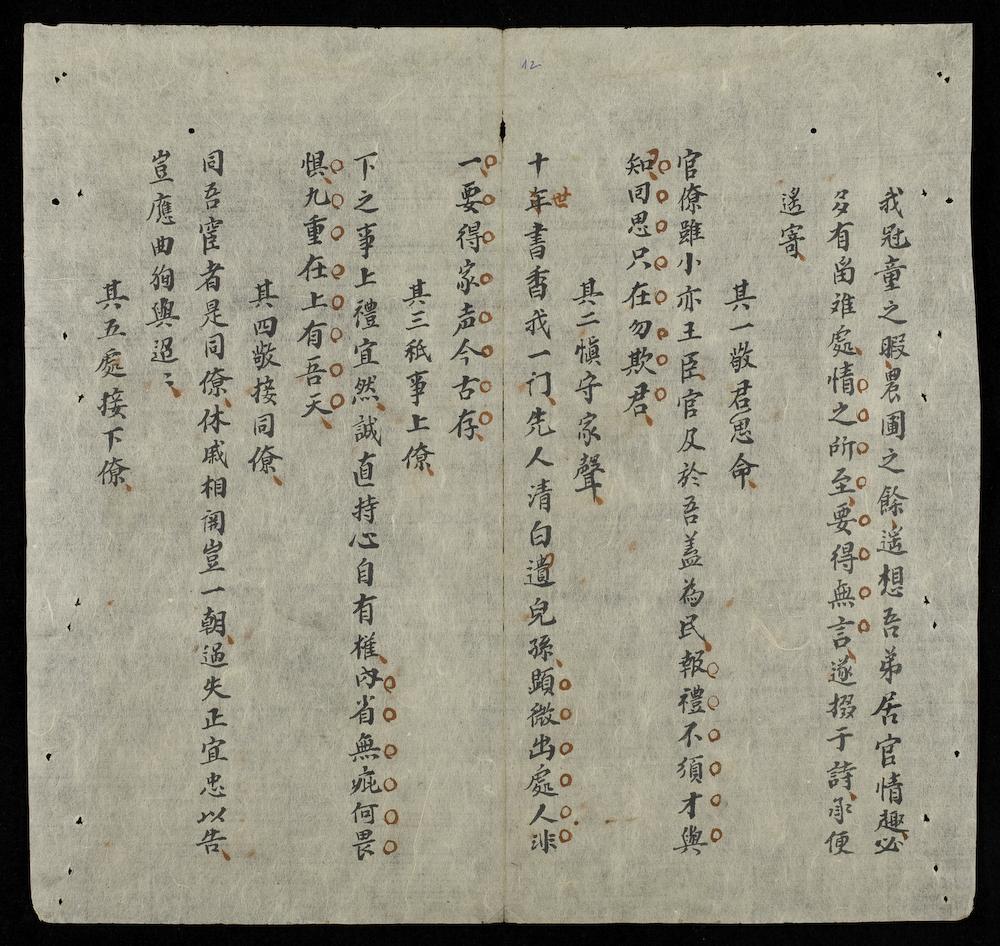 12
我冠童之暇農圃之餘遥想吾弟居官情趣必
多有甾难處情之所至要得無言遂掇于詩承便
遥寄
其一敬君思命
官僚雖小亦王臣官及於吾盖為民報禮不須才與
知回思只在勿欺君
其二慎守家聲
十年世書香我一门先人清白遺兒孫顕微出處人非
一要得家声今古存
其三祇事上僚
下之事上禮宜然誠直持心自有權内省無疵何畏
惧九重在上有吾天
其四敬接同僚
同吾宦者是同僚休戚相関豈一朝過失正宜忠以告
豈應曲徇與迢〻
其五處接下僚